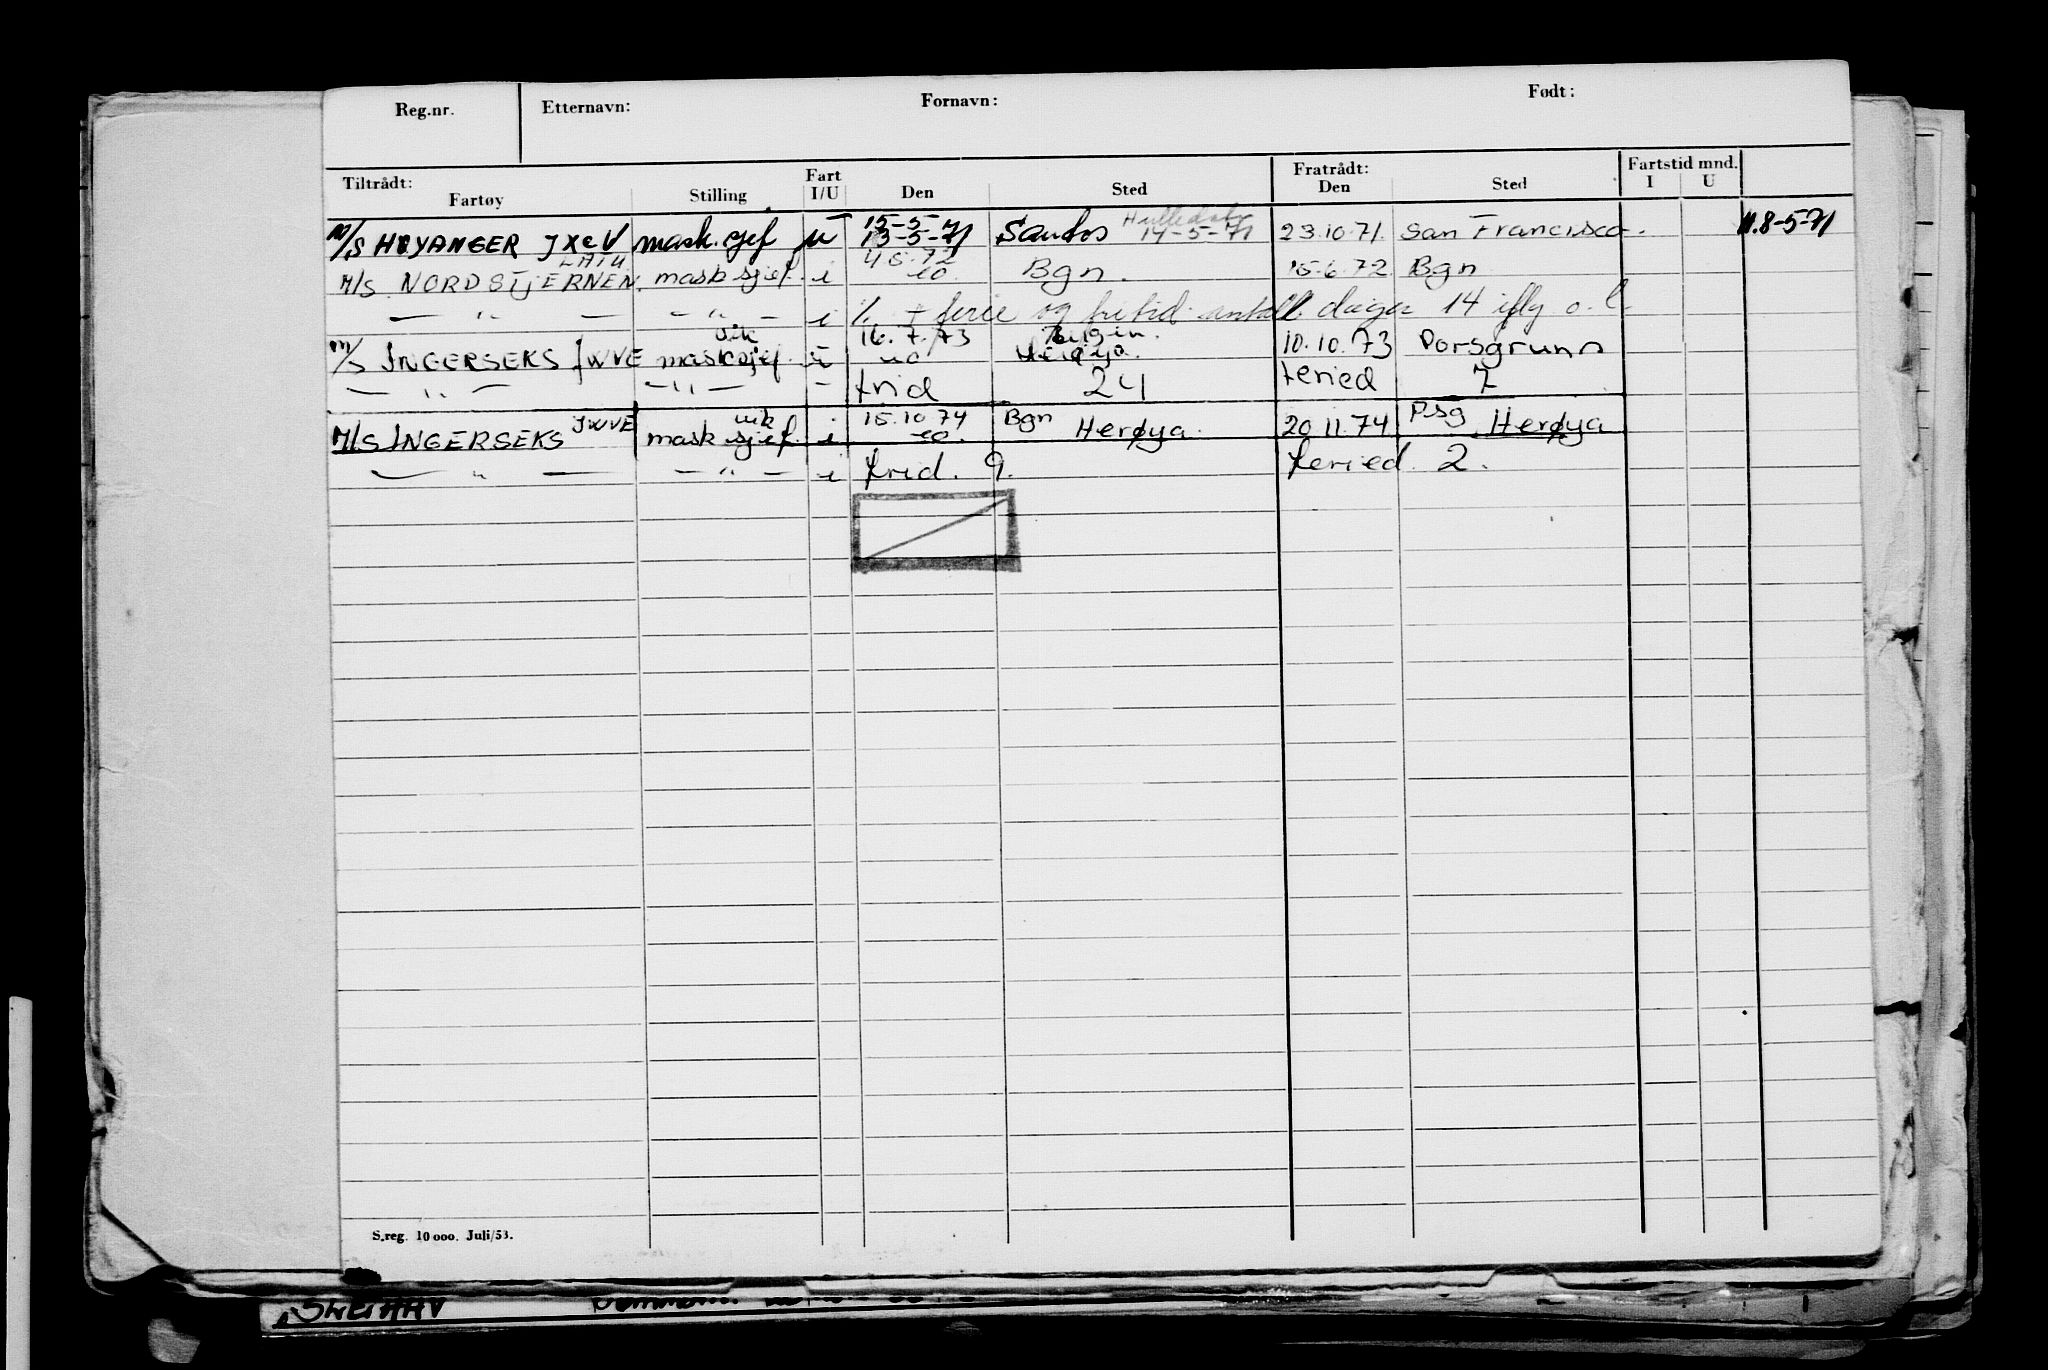 Reg.nr. Etternavn: Fornavn: Født:
Tiltrådt: Fart Fratrådt: Fartstid mnd.
Fartøy Stilling I/U Den Sted Den Sted I U
15-5-71
M/S HØYANGER JXCV mask. sjef u 13-5-71 Santos 14-5-71 23.10.71. San Francisco. 8-5-71
M/S NORDSTJERNEN. mask sjef. i Bgn. 15.6.72 Bgn
— " — - " - i % + ferie og fritid antall dager 14 iflg o.l.
vik 16.7.73
M/S INGERSEKS JWVE mask sjef. Herøya. 10.10.73 Porsgrunn
— " — — " — - frid 24 feried 7
JWVE vik 15.10.74 Bgn Psg
M/S INGERSEKS mask sjef. i Herøya. 20.11.74 Herøya
— " — — " — i frid. 9. feried. 2.
S.reg. 10 000. Juli/53.